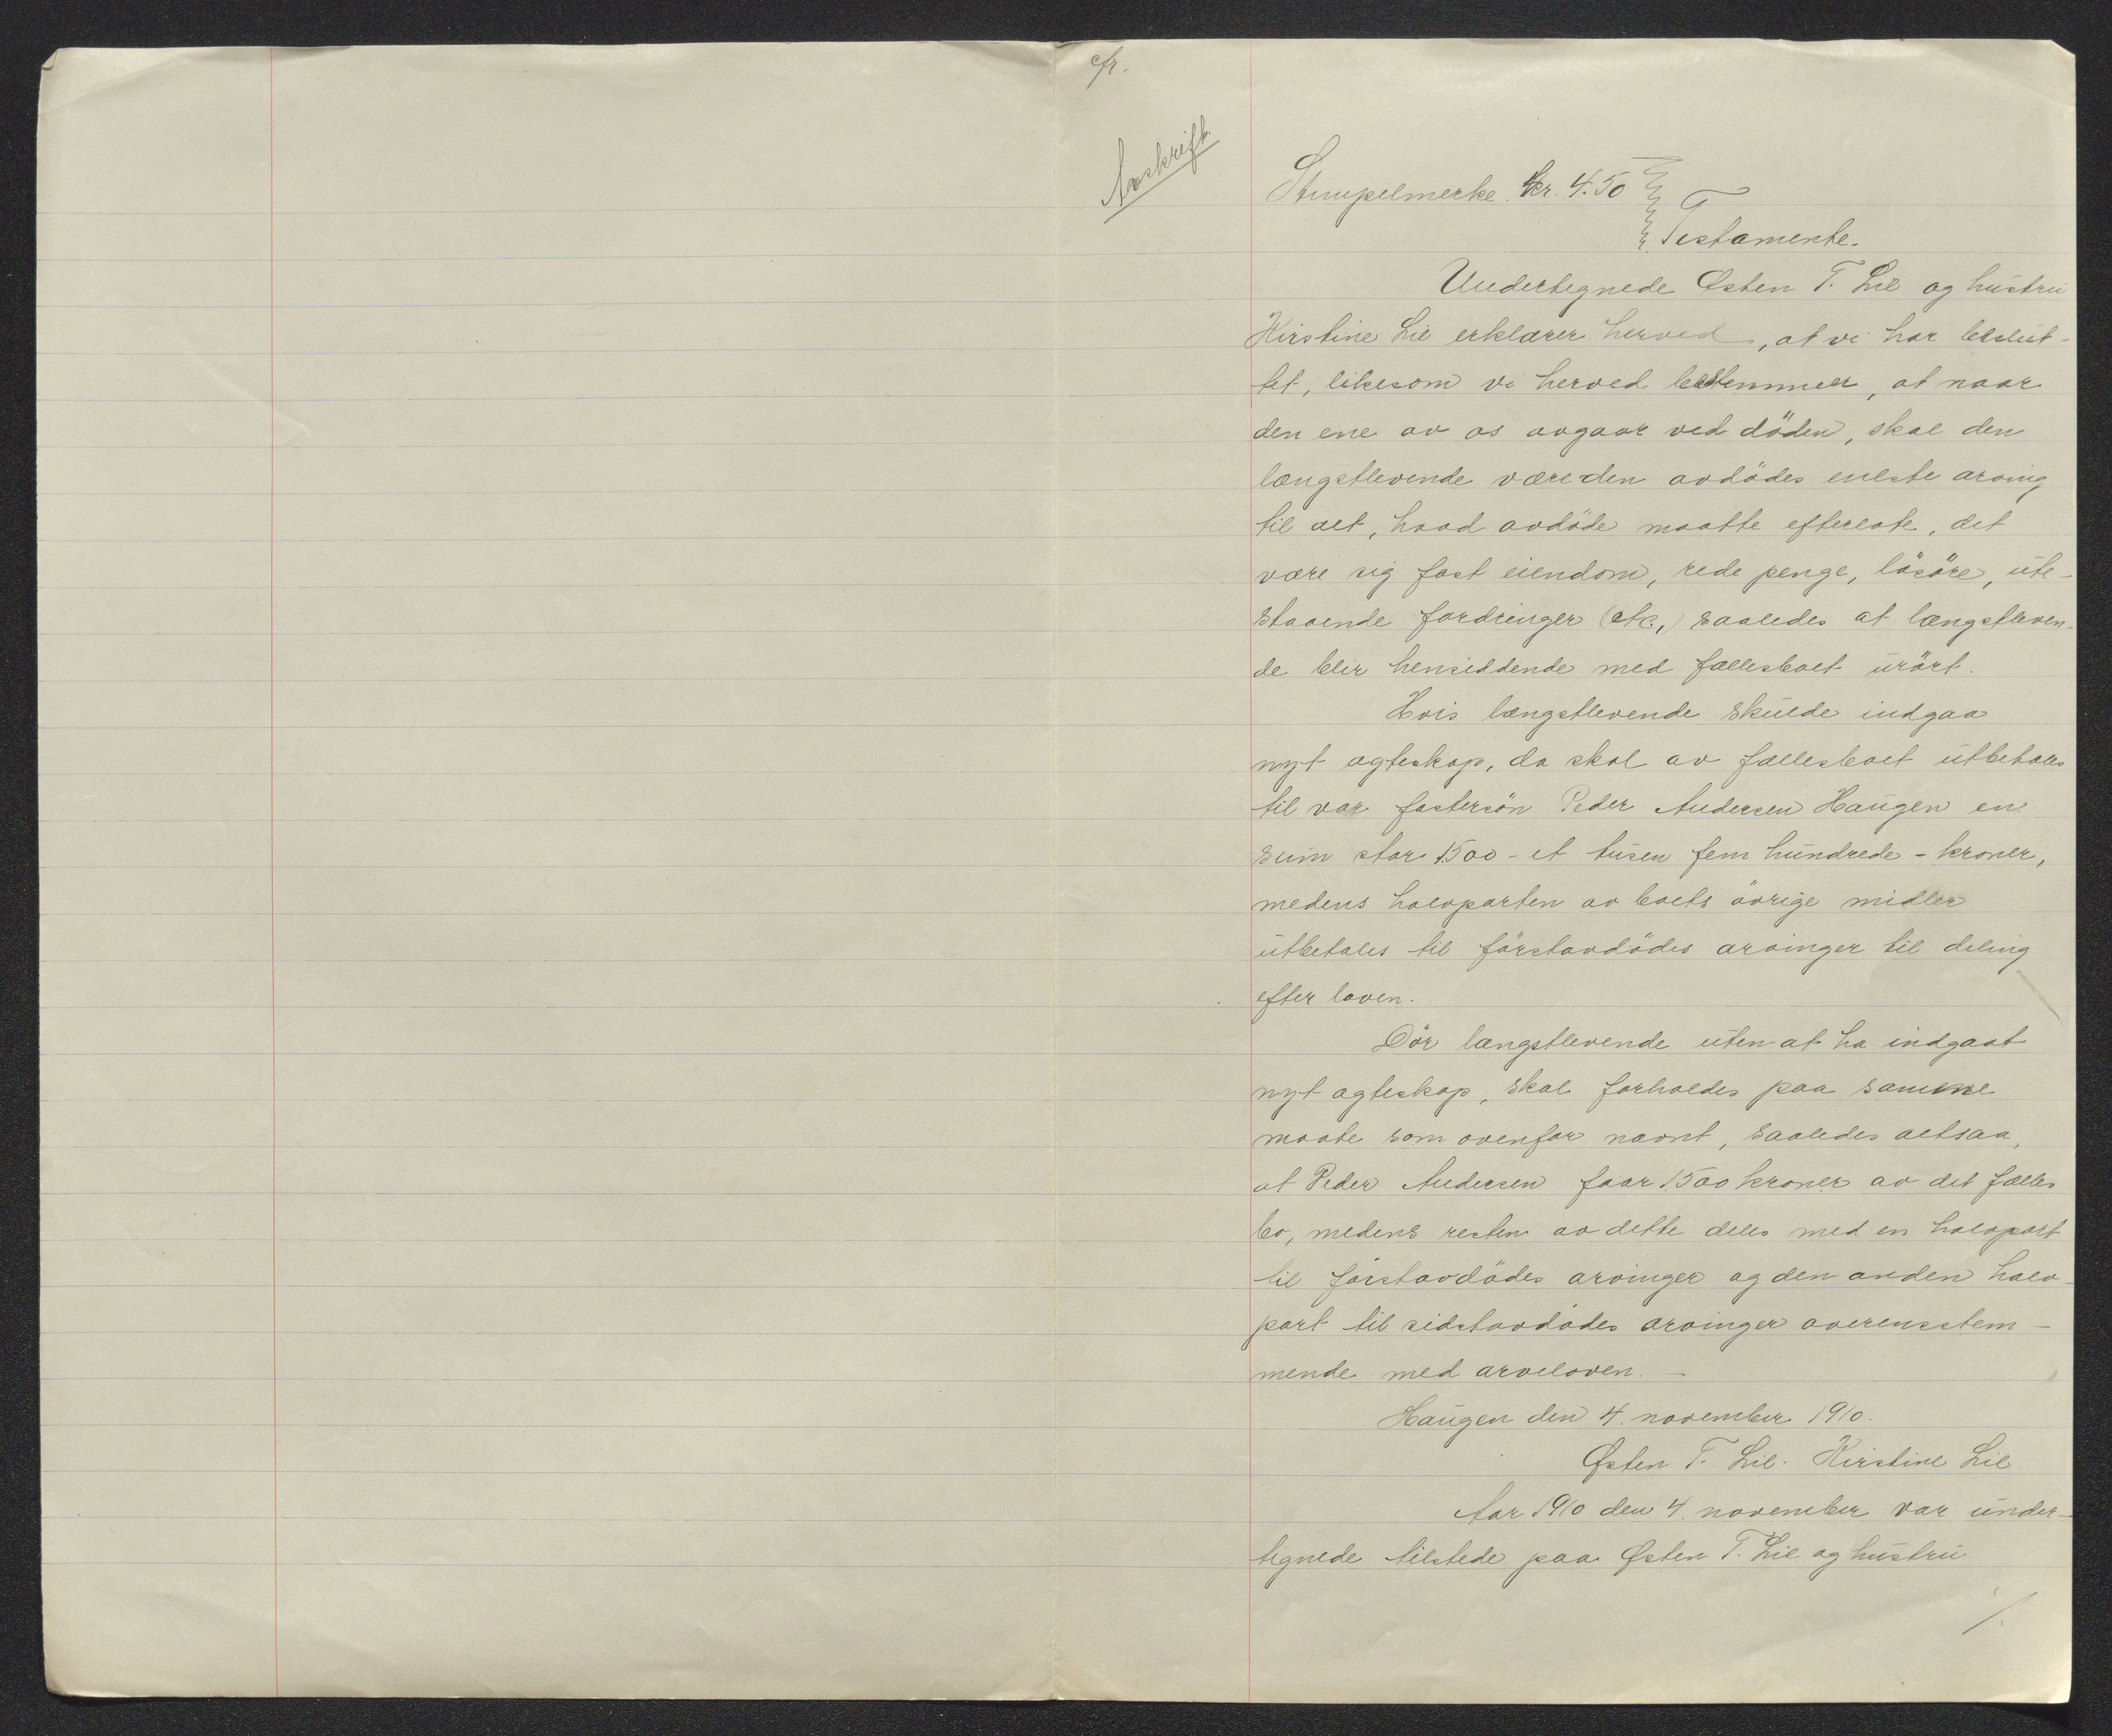 cfr.
Avskrift
Stempelmerke. kr. 4.50
Testamente.
Undertegnede Østen T. Lie og hustru
Kirstine Lie erklærer herved, at vi har beslut-
tet, likesom vi herved bestemmer, at naar
den ene av os avgaar ved döden, skal den
længstlevende være den avdödes eneste arving
til alt, hvad avdöde maatte efterlate, det
være sig fast eiendom, rede penge, lösöre, ute-
staaende fordringer (etc,) saaledes at længstleven-
de blir hensiddende med fællesboet urört.
Hvis længstlevende skulde indgaa
nyt ægteskap, da skal av fællesboet utbetales
til vor fostersön Peder Andersen Haugen en
sum stor 1500 - et tusen fem hundrede - kroner,
medens halvparten av boets övrige midler
utbetales til förstavdödes arvinger til deling
efter loven.
Dör længstlevende uten at ha indgaat
nyt ægteskap, skal forholdes paa samme
maate som ovenfor nævnt, saaledes altsaa,
at Peder Andersen faar 1500 kroner av det fælles
bo, medens resten av dette deles med en halvpart
til förstavdödes arvinger og den anden halv-
part til sidstavdödes arvinger overensstem-
mende med arveloven. -
Haugen den 4. november 1910.
Østen T. Lie. Kirstine Lie
Aar 1910 den 4. november var under-
tegnede tilstede paa Østen T. Lie og hustru
./.